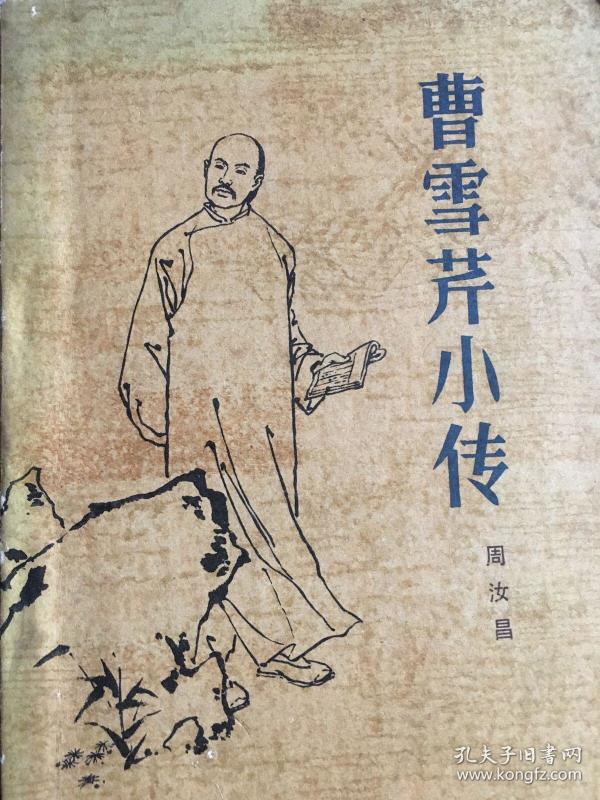 曹雪芹小传
周汝昌
孔夫子旧书网
www.kongfz.com